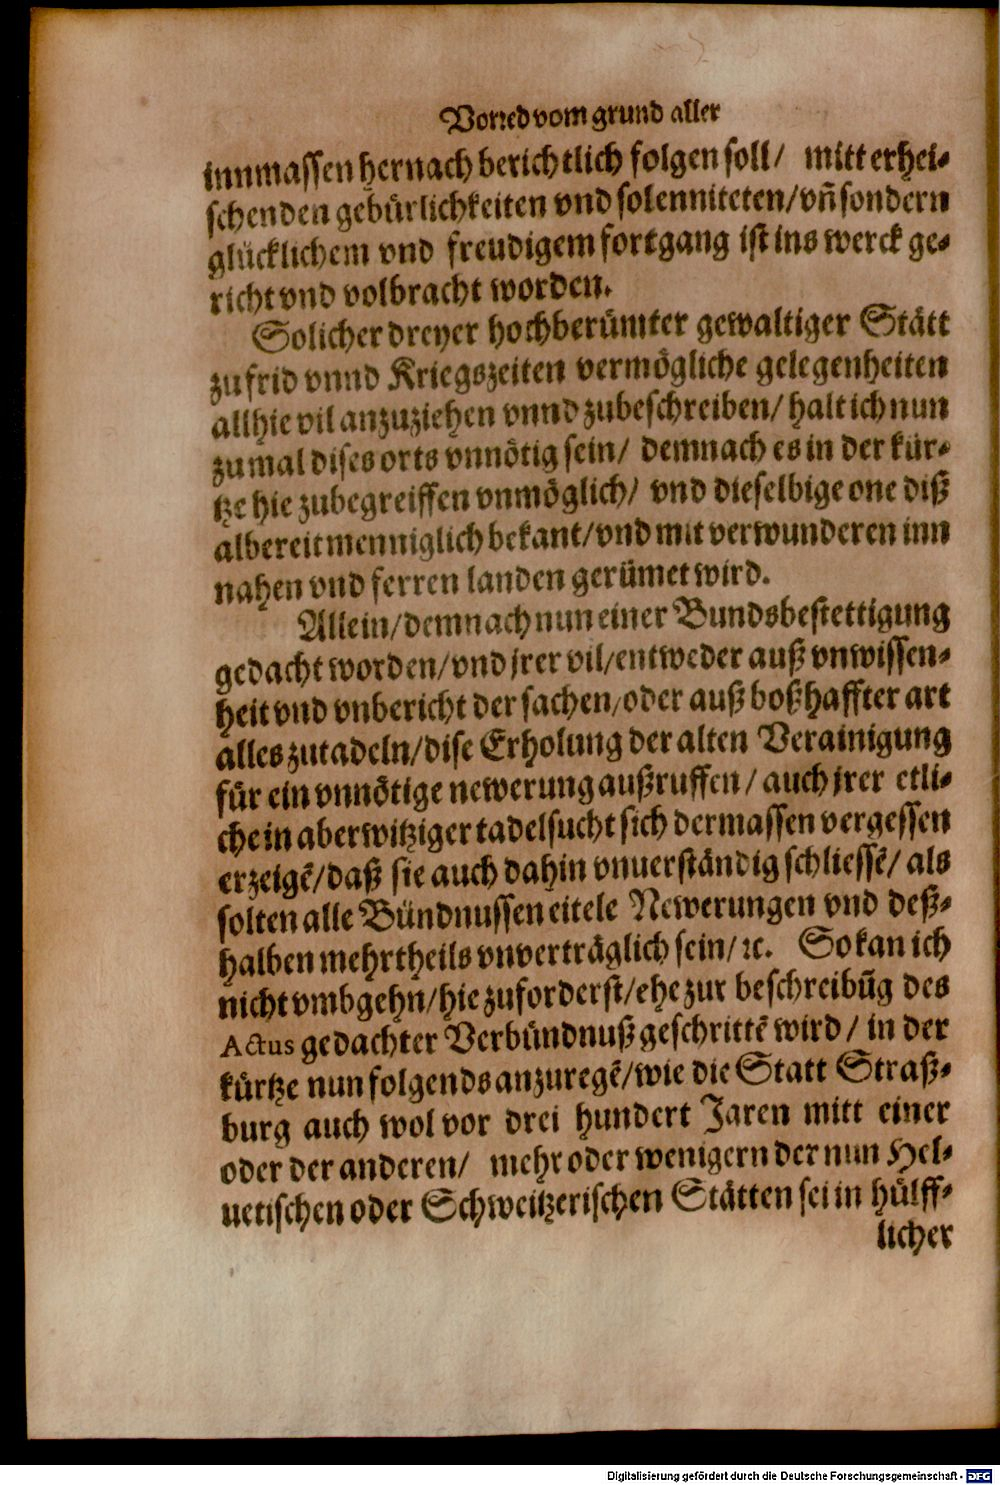 Vorred vom grund aller
innmassen hernach berichtlich folgen soll/ mitt erhei-
schenden gebürlichkeiten vnd solenniteten/vñ sondern
glücklichem vnd freudigem fortgang ist ins werck ge-
richt vnd volbracht worden.
Solicher dreyer hochberümter gewaltiger Stätt
zu frid vnnd Kriegszeiten vermögliche gelegenheiten
allhie vil anzuziehen vnnd zubeschreiben/ halt ich nun
zumal dises orts vnnötig sein/ demnach es in der kür-
tze hie zubegreiffen vnmöglich/ vnd dieselbige one diß
albereit menniglich bekant/vnd mit verwunderen inn
nahen vnd ferren landen gerümet wird.
Allein/demnach nun einer Bundsbestettigung
gedacht worden/vnd jrer vil/entweder auß vnwissen-
heit vnd vnbericht der sachen/oder auß boßhaffter art
alles zutadeln/dise Erholung der alten Verainigung
für ein vnnötige newerung außruffen/ auch jrer etli-
che in aberwitziger tadelsucht sich dermassen vergessen
erzeigẽ/daß sie auch dahin vnuerständig schliessẽ/ als
solten alle Bündnussen eitele Newerungen vnd deß-
halben mehrtheils vnverträglich sein/ꝛc. So kan ich
nicht vmbgehn/hie zuforderst/ehe zur beschreibũg des
Actus gedachter Verbündnuß geschrittẽ wird/ in der
kürtze nun folgends anzuregẽ/wie die Statt Straß-
burg auch wol vor drei hundert Jaren mitt einer
oder der anderen/ mehr oder wenigern der nun Hel-
uetischen oder Schweitzerischen Stätten sei in hülff-
licher
Digitalisierung gefördert durch die Deutsche Forschungsgemeinschaft - DFG